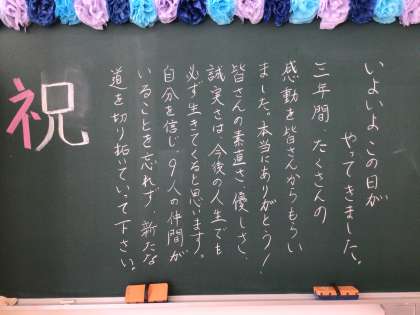 いよいよこの日が
やってきました。
三年間、たくさんの
感動を皆さんからもらい
ました。本当にありがとう!
皆さんの素直さ、優しさ、
誠実さは、今後の人生でも
必ず生きてくると思います。
自分を信じ、9人の仲間が
いることを忘れず、新たな
道を切り拓いていって下さい。
祝